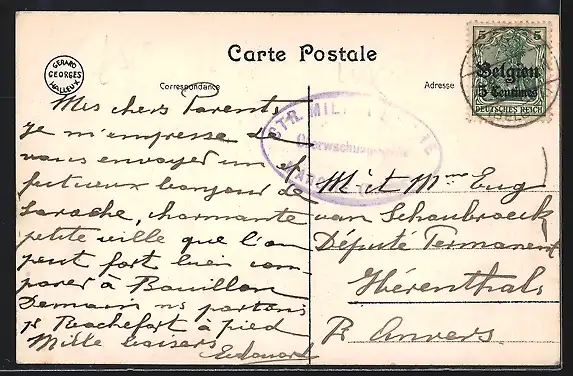 Carte Postale
GÉRARD
GEORGES
HALLEUX
Correspondance
Adresse
5 5
Belgien
5 Centimes
DEUTSCHES REICH
Mes chers Parents
Je m'empresse de
vous envoyer un
bonjour de
Laroche, charmante
petite ville que l'on
peut fort bien com
parer à Bouillon
Demain ns partons
pr Rochefort à pied
Mille baisers
Edouard
M. et Mme Eug
van Schoubroeck
Député Permanent
Hérenthals
Pr Anvers